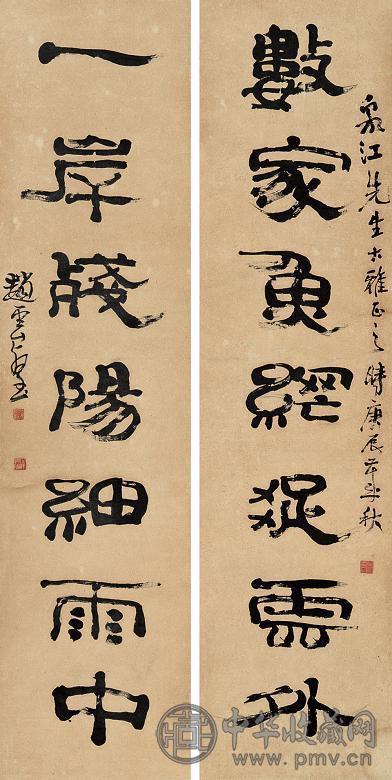 數家魚網疏雲外
江先生大雅正之 時庚辰秋
一岸殘陽細雨中
趙雲
中华收藏网
www.pmv.cn